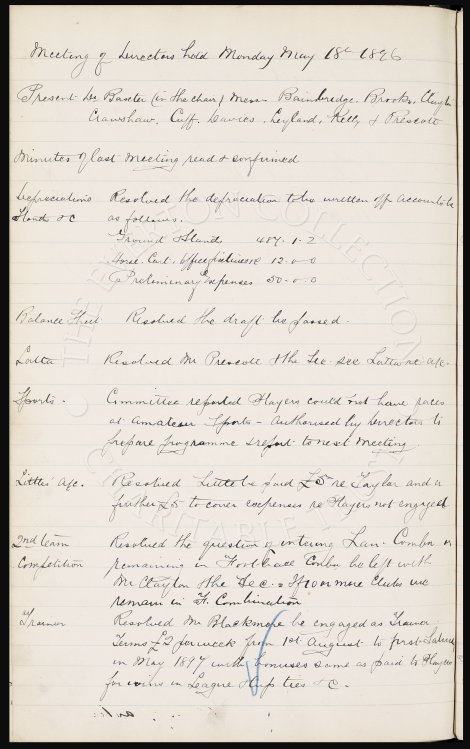 Meeting of Directors held Monday May 18th 1896
Present Dr Baxter (in the chair) Messrs Bainbridge, Brooks, Clayton
Crawshaw, Cuff, Davies, Leyland, Kelly & Prescott
Minutes of last meeting read & confirmed
Depreciations Resolved the depreciation to be written off accounts be
Stands &c as follows.
Ground & Stands 487 . 1 - 2
Horse, Cart, Office fixtures &c 12 - 0 - 0
Preliminary Expenses 50 - 0 - 0
Balance Sheet Resolved the draft be passed.
Resolved Mr Prescott & the Sec. see re a/c.
Sports. Committee reported Players could not have races
at amateur Sports - authorised by Directors to
prepare programme & report to next meeting
Resolved be paid £5 re Taylor and a
further £5 to cover expenses re Players not engaged
2nd team Resolved the question of entering Lan. Combn or
Competition remaining in Football Combn be left with
Mr Clayton & the Sec. - If 10 or more Clubs we
remain in F. Combination
Trainer Resolved Mr Blackmore be engaged as Trainer
Terms £2 per week from 1st August to first Saturday
in May 1897 with bonuses same as paid to Players
for wins in League & Cup ties &c.
THE EVERTON COLLECTION
CHARITABLE TRUST